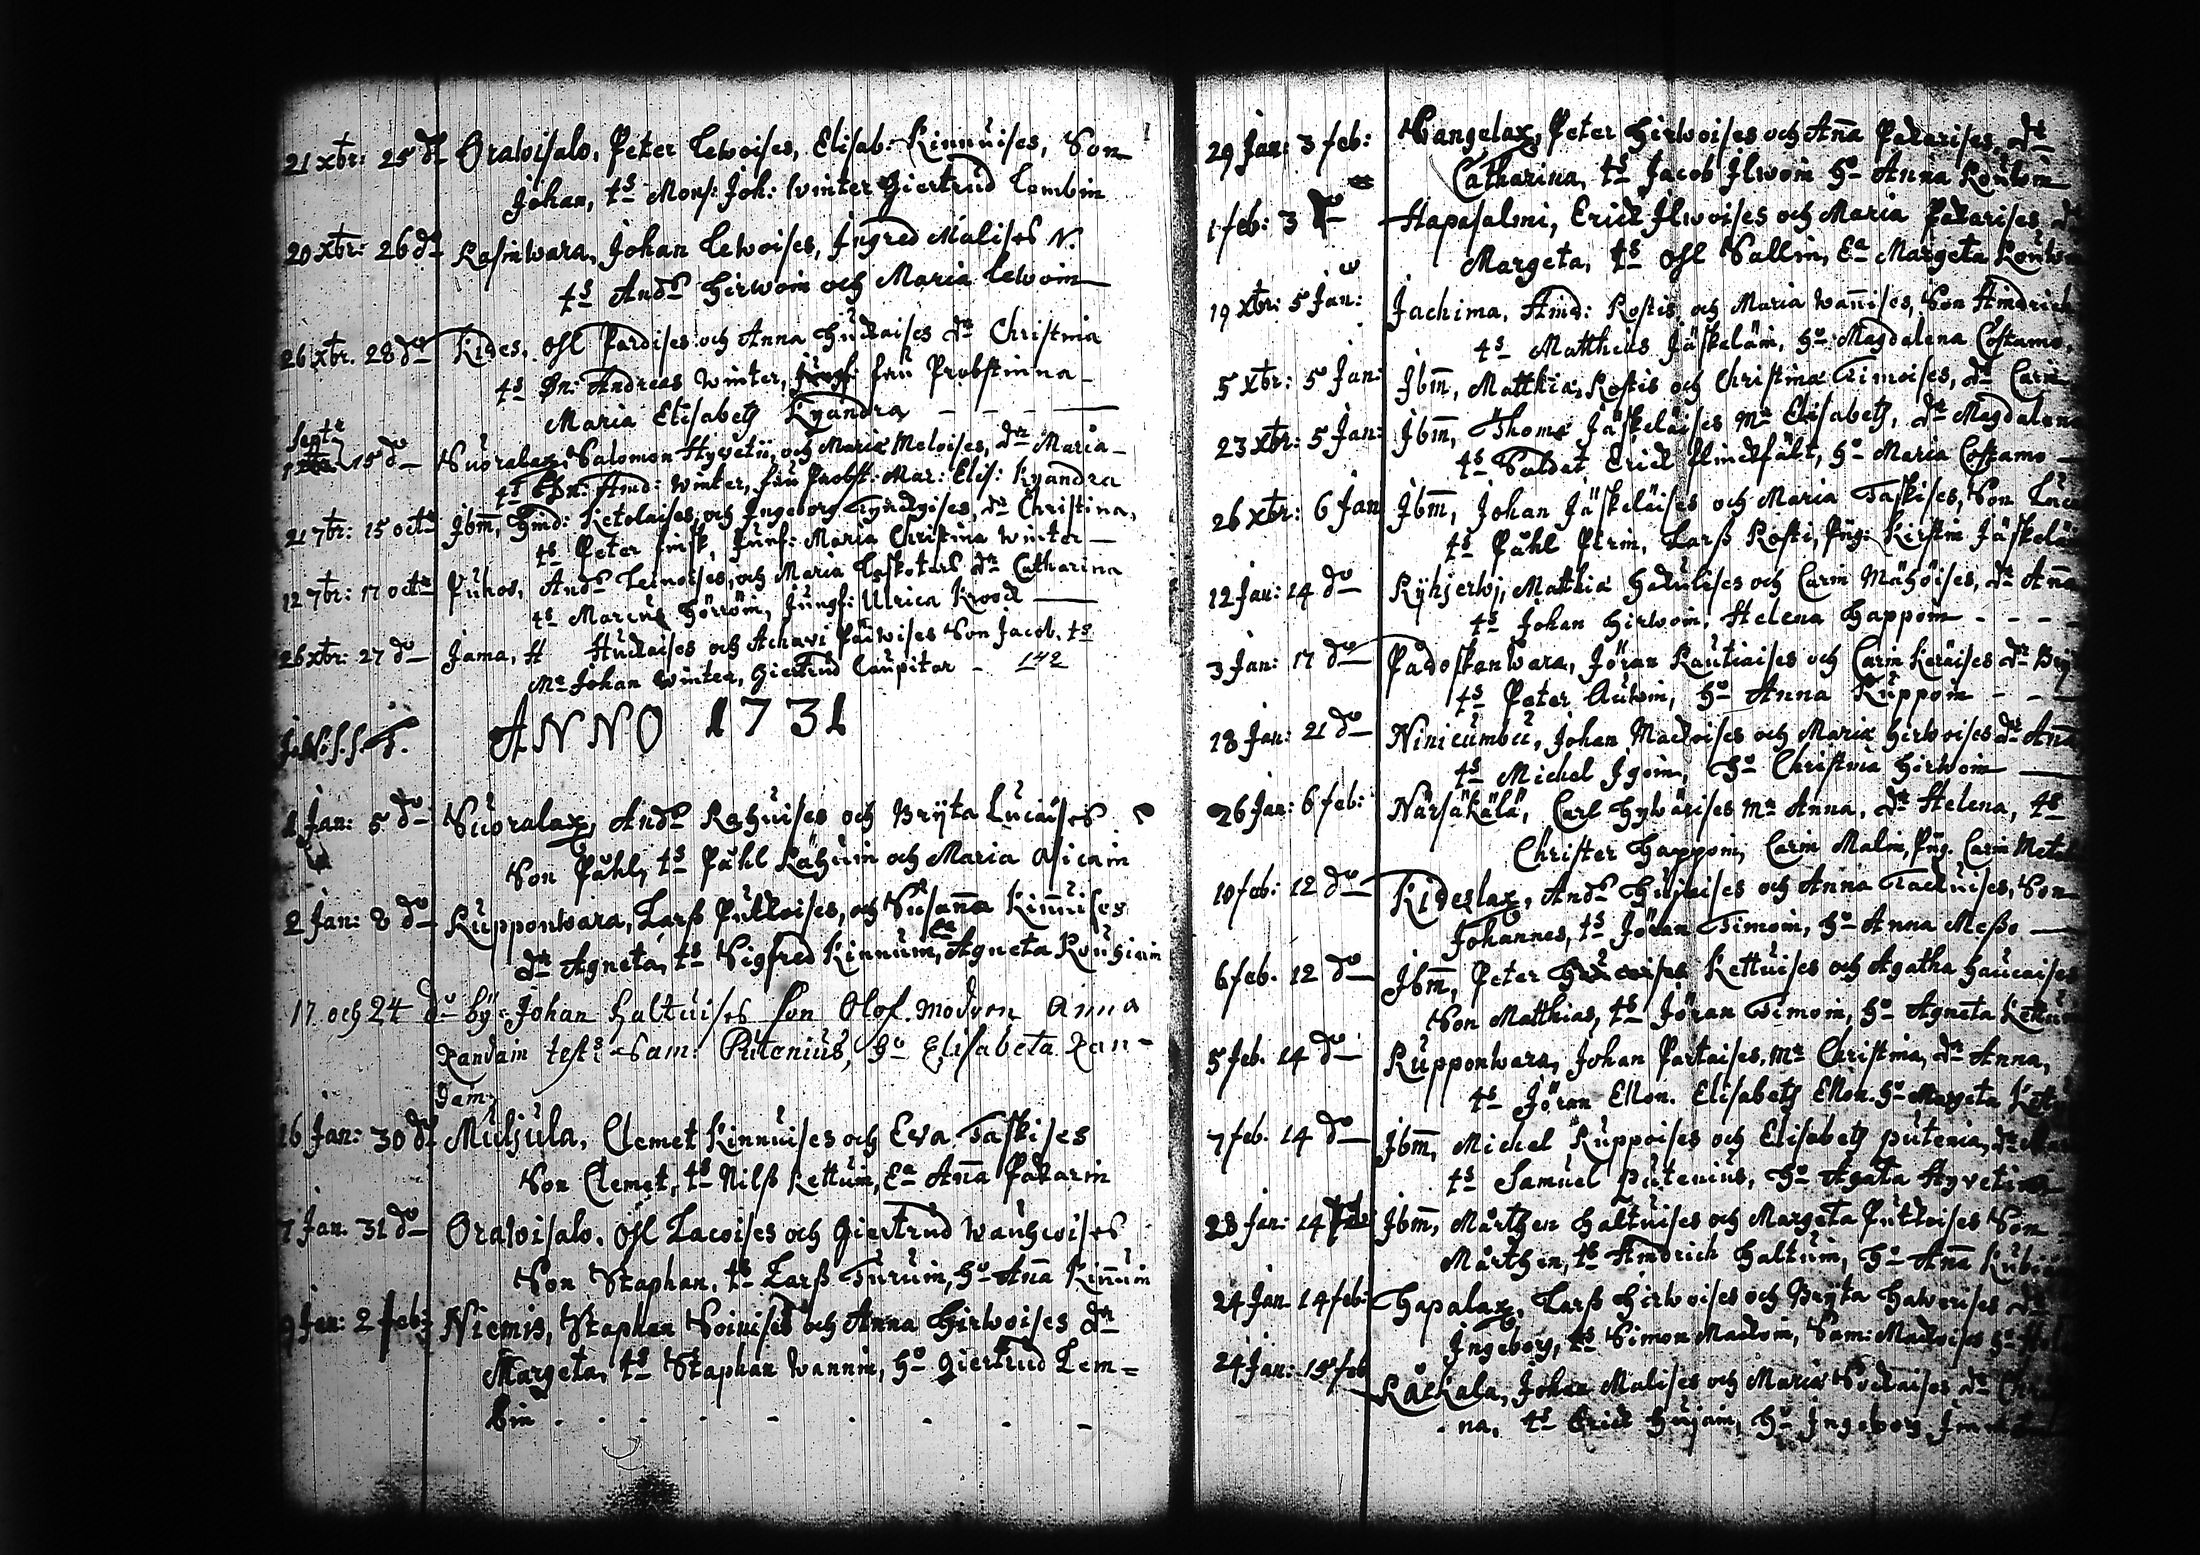 21 xbr: 25 do Orawisalo, Peter Lewoises, Elisab: Kinnuises, Son
Johan, ts Mons: Joh: Winter Giertrud Lembin
20 xbr: 26 do Rasiwara, Johan Lewoises, Ingred Malises N.
ts Ands Hirwoin och Maria Lewoin
26 xbr. 28 do Kides, Ofl Pardises och Anna Huckaises dr Christina
ts Hn: Andreas Winter, fru Probstinna
Maria Elisabeth Kyandra
Septr
15 do Suoralax, Salomon Hyvetii, och Maria Meloises, dr Maria
ts Hn: And: Winter, fru Probst: Mar: Elis: Kyandra
21 7br: 15 octr Ibm, Hind: Ketolaises, och Ingeborg Tyndyises, dr Christina,
ts Peter Finsk, Junf: Maria Christina Winter
12 7br: 17 octr Puhos, Ands Leinoises, och Maria Laskotars dr Catharina
ts Marcus Hörröin, Jungf: Ulrica Krook
26 xbr: 27 do Jama, H Huckaises och Achavi Päiwises Son Jacob, ts
Mr Johan Winter, Giertrud Caupitar - 142
J.N.S.S.T. ANNO 1731
1 Jan: 5 do Suoralax, Ands Rahuises och Bryta Lucaises
Son Påhl, ts Påhl Rähuin och Maria Asicain
2 Jan: 8 do Rupponwara, Larß Putkoises, och Susanna Kinnuises
dr Agneta, ts Sigfred Kinnuin, Ea Agneta Rouhiain
17 och 24 do by: Johan Haltuises son Olof. modren Anna
Pandain test: Sam: Putenius, Ho Elisabeta Pan-
dain
16 Jan: 30 do Muljula, Clemet Kinnuises och Eva Taskises
Son Clemet, ts Nilß Kettuin, Ea Anna Pakarin
7 Jan. 31 do Orawisalo, Ofl Lacoises och Giertrud Wauhcoises
Son Staphan, ts Larß Turuin, Ho Anna Kinnuin
9 Jan: 2 feb: Niemis, Staphan Soinises och Anna Hirwoises dr
Margeta, ts Staphan Wannin, Ho Giertrud Lem=
bin
29 Jan: 3 feb: Hangelax, Peter Hirwoises och Anna Pakarises, dr
Catharina, ts Jacob Ilwoin Ho Anna Koutoin
1 feb: 3 do Hapasalmi, Erick Ilwoises och Maria Pakarises, dr
Margeta, ts Ofl Sallin, Ea Margeta
19 xbr: 5 Jan: Jachima, Hind: Rostis, och Maria Wannises, Son Hindrich
ts Matthias Jäskeläin, Ho Magdalena Costamo,
5 xbr: 5 Jan: Ibm, Matthia Rostis och Christina Timoises, dr Carin
23 xbr: 5 Jan: Ibm, Thoms Jäskeläises Mr Elisabeth, dr Magdalena
ts Soldat Erick Klinckfält, Ho Maria Costamo
26 xbr: 6 Jan Ibm, Johan Jäskeläises och Maria Taskises, Son
ts Påhl Pirin, Larß Rosti, Png: Kirstin
12 Jan: 14 do Ryhjerwj, Matthia Hakulises och Carin Mähöises, dr Anna
ts Johan Hirwoin, Helena Happoin
3 Jan: 17 do Padoskanwara, Jöran Rautiaises och Carin Keräises dr
ts Peter Auwin, Ho Anna Ruppoin
18 Jan: 21 do Ninicumbu, Johan Mackoises och Maria Hirwoises dr Anna
ts Michel Igoin, Ho Christina Hirwoin
26 Jan: 6 feb: Närsäkälä, Carl Hywärises Mr Anna, dr Helena, ts
Christer Happoin, Carin Malin, Png. Carin
10 feb: 12 do Kideslax, Ands Hujaises och Anna Tackuises, Son
Johannes, ts Jöran Timoin, Ho Anna Meßo
6 feb. 12 do Ibm, Peter Kettuises och Agatha Haucaises
Son Matthias, ts Jöran Timoin, Ho Agneta
5 feb. 14 do Rupponwara, Johan Partaises, Mr Christina, dr Anna,
ts Jöran Ellon. Elisabeth Ellon. Ho Margeta
7 feb. 14 do Ibm, Michel Ruppoises och Elisabeth Putenia, dr
ts Samuel Putenius, Ho Agata
28 Jan: 14 Ibm, Mårthen Haltuises och Margeta Putkoises Son
Mårthen, ts Hindrich Haltuin, Ho Anna
24 Jan 14 feb: Hapalax, Larß Hirwoises och Bryta Hawerises dr
Ingeborg, ts Simon Mackoin, Sam: Mackoises Ho
24 Jan: 15 feb Rackala, Johan Malises och Maria Sockaises dr
na, ts Erick Hujain, Ho Ingeborg